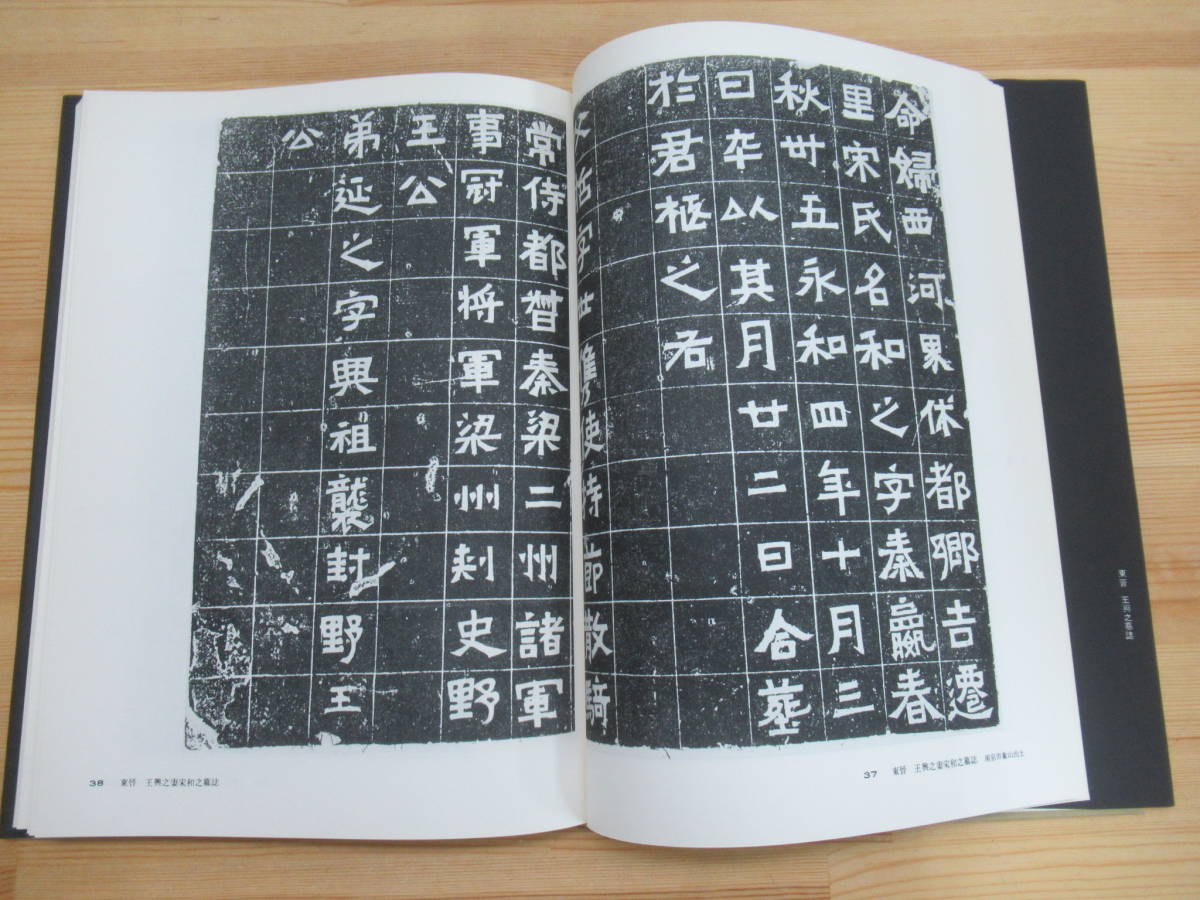 命婦西河界休都鄉吉遷
里宋氏名和之字秦嬴春
秋卅五永和四年十月三
日卒以其月廿二日合葬
於君柩之右
父哲字世儁使持節散騎
37 東晉 王興之妻宋和之墓誌 南京市象山出土
常侍都督秦梁二州諸軍
事冠軍将軍梁州刺史野
王公
弟延之字興祖襲封野王
公
38 東晉 王興之妻宋和之墓誌
東晉 王興之墓誌